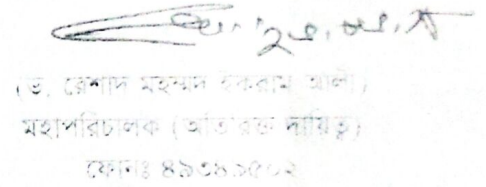 (ড. রেশাদ মহম্মদ ইকরাম আলী)
মহাপরিচালক (অতিরিক্ত দায়িত্ব)
ফোনঃ ৪৯৩৪৯৫০২